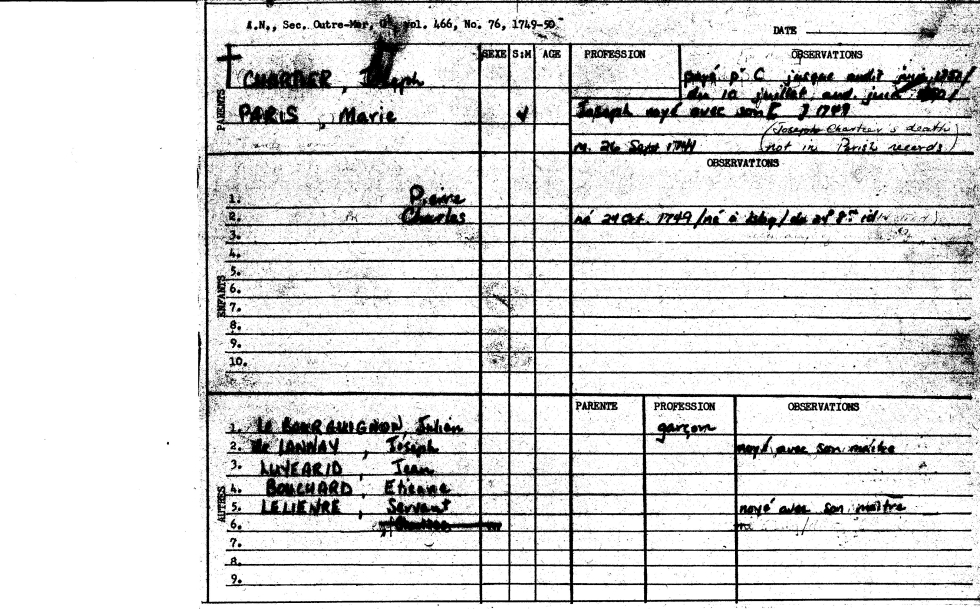 A.N., Sec. Outre-Mer, vol. 466, No. 76, 1749-50
DATE
SEXE S:M AGE PROFESSION OBSERVATIONS
PARENTS
CHARTIER, Joseph
payé p. C jusque audit juin
du 10 juillet aud. juin
PARIS, Marie
Joseph noyé avec son [ ] 1749
(Joseph Chartier's death
m. 26 Sept 1744 not in Parish records)
OBSERVATIONS
ENFANTS
1. Pierre
2. Charles né 24 Oct. 1749/né à
3.
4.
5.
6.
7.
8.
9.
10.
PARENTE PROFESSION OBSERVATIONS
AUTRES
1. LE BOURGUIGNON, Julien garçom
2. De LANNAY, Joseph noyé avec son maître
3. LUYEARID, Jean
4. BOUCHARD, Etienne
5. LELIENRE, Servant noyé avec son maître
6.
7.
8.
9.